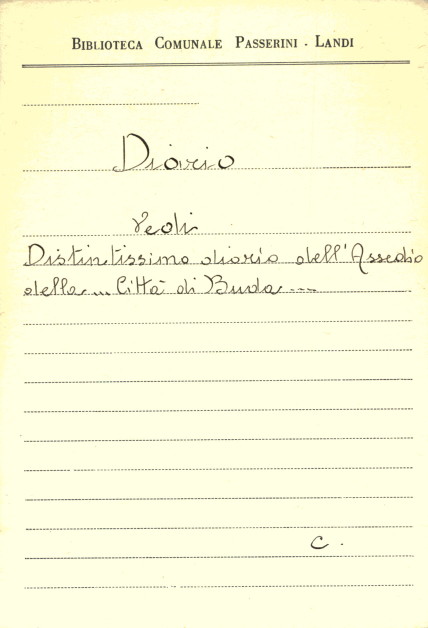 BIBLIOTECA COMUNALE PASSERINI - LANDI
Diario
Vedi
Distintissimo diario dell'Assedio
della ... Città di Buda ---
C.